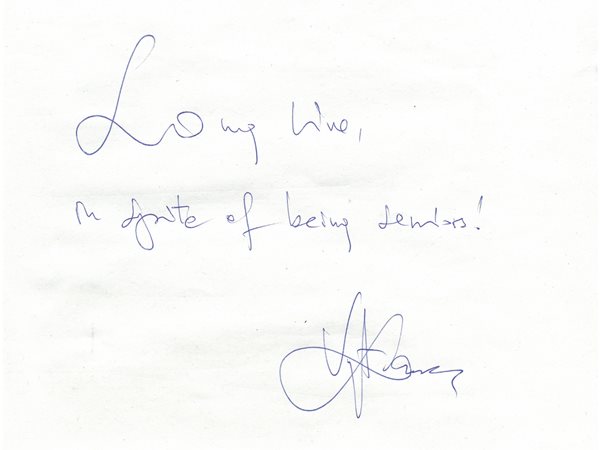 Long live,
in spite of being seniors!